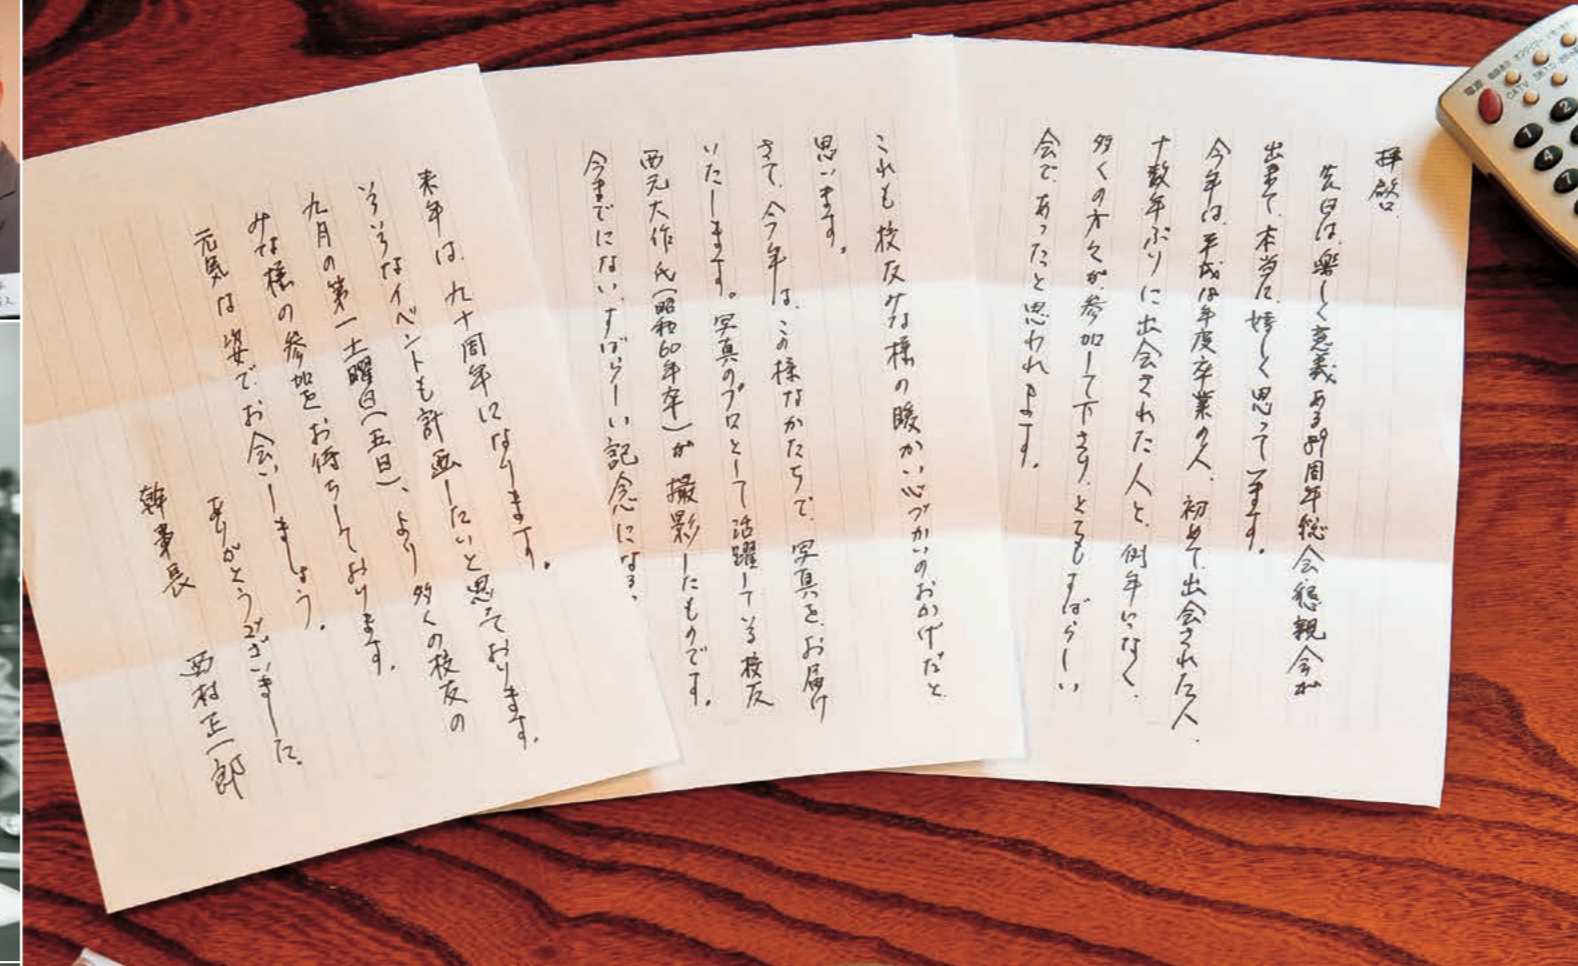 拝啓
先日は、楽しく意義ある89周年総会懇親会が
出来て、本当に、嬉しく思って います。
今年は、平成18年度卒業の人、初めて、出会された人、
十数年ぶりに出会された人と、例年になく、
多くの方々が、参加して下さり、とてもすばらしい
会で、あったと思われます。
これも校友みな様の暖かい心づかいのおかげだと
思います。
さて、今年は、この様なかたちで、写真を、お届け
いたします。写真のプロとして活躍している校友
西元大作氏(昭和60年卒)が撮影したものです。
今までにない、すばらしい記念になる、
来年は、九十周年になります。
いろいろなイベントも計画したいと思っております。
九月の第一土曜日(五日)、より多くの校友の
みな様の参加を、お待ちしております。
元気は姿で、お会いしましょう。
ありがとうございました。
幹事長 西村正一郎
電源
CATV
1
2
4
7